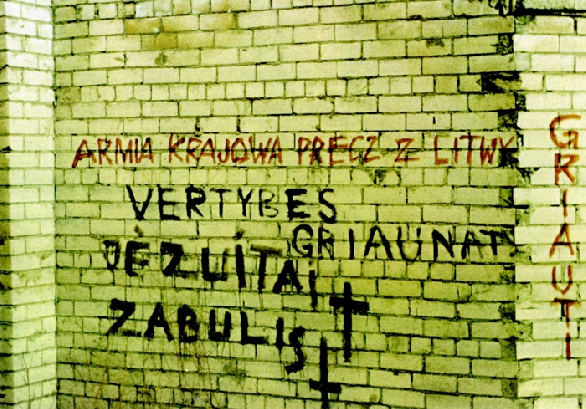 ARMIA KRAJOWA PRECZ Z LITWY
VERTYBES
GRIAUNAT
JĖZUITAI
ZABULIS
GRIAUTI